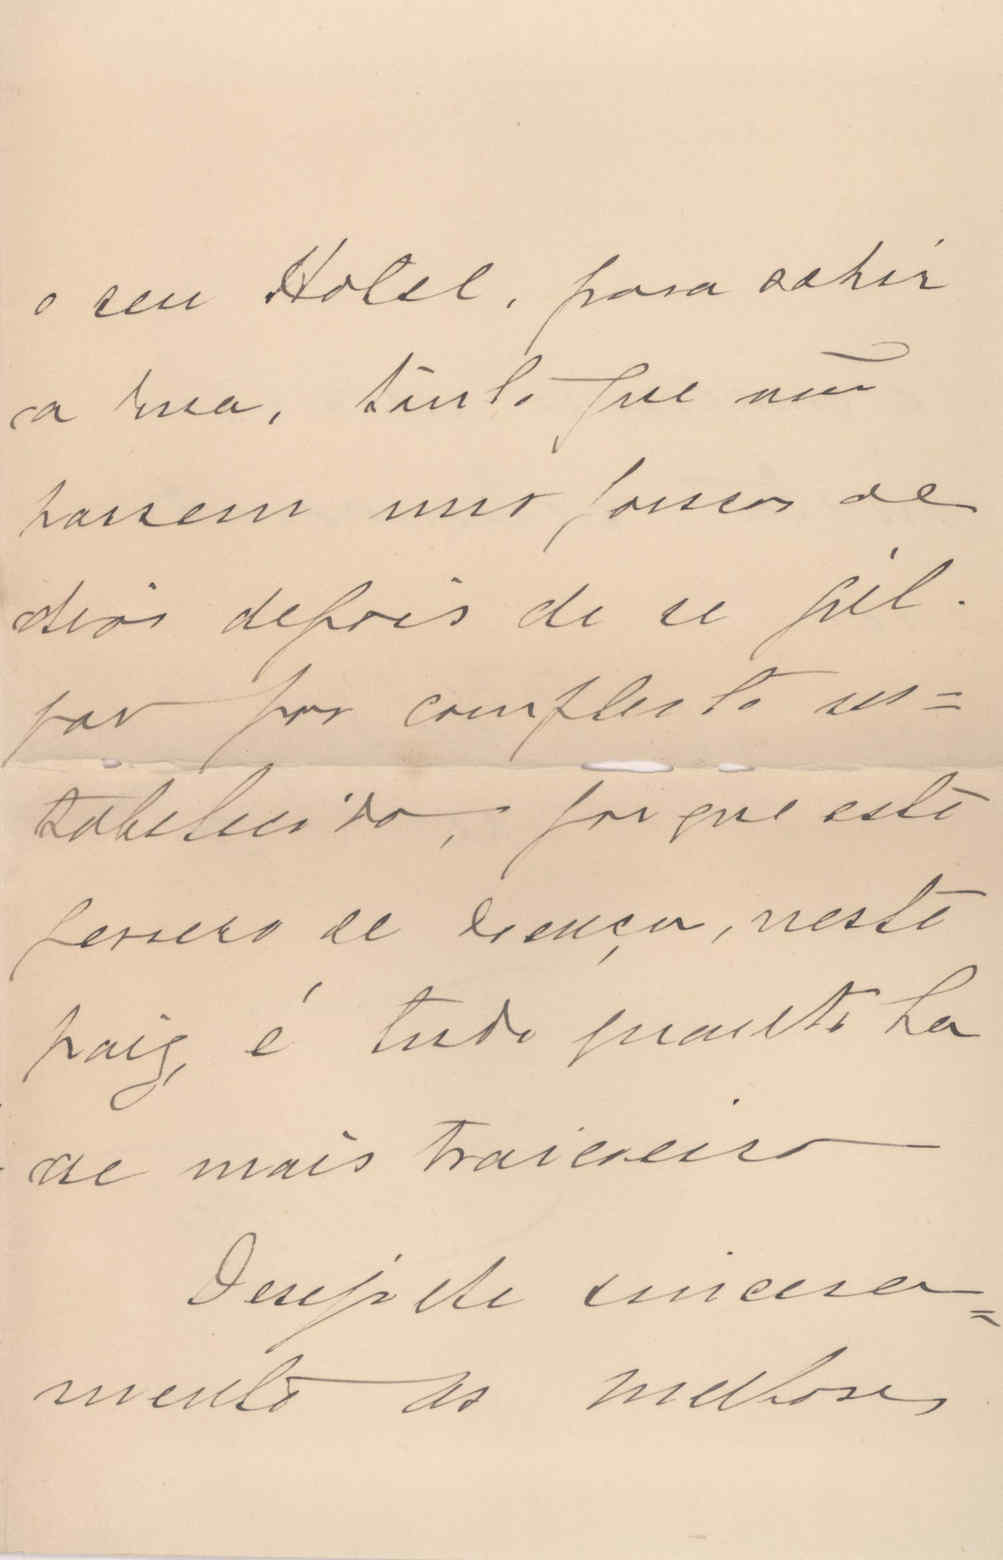 o seu Hotel, para sahir
a rua, sinto que não
passem uns poucos de
dias depois de se jul-
gar por completo res=
tabelecido, porque este
genero de doença, neste
paiz, é tudo quanto ha
de mais traiçoeiro
Desejo lhe sincera=
mente as melhoras